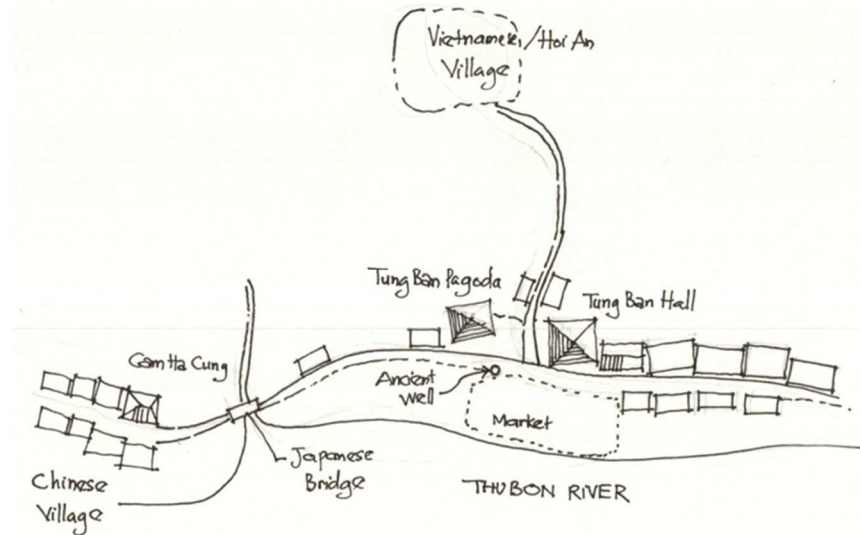 Vietnamese/Hoi An
Village
Tung Ban Pagoda
Tung Ban Hall
Cam Ha Cung
Ancient
well
Market
Japanese
Bridge
Chinese
Village
THUBON RIVER